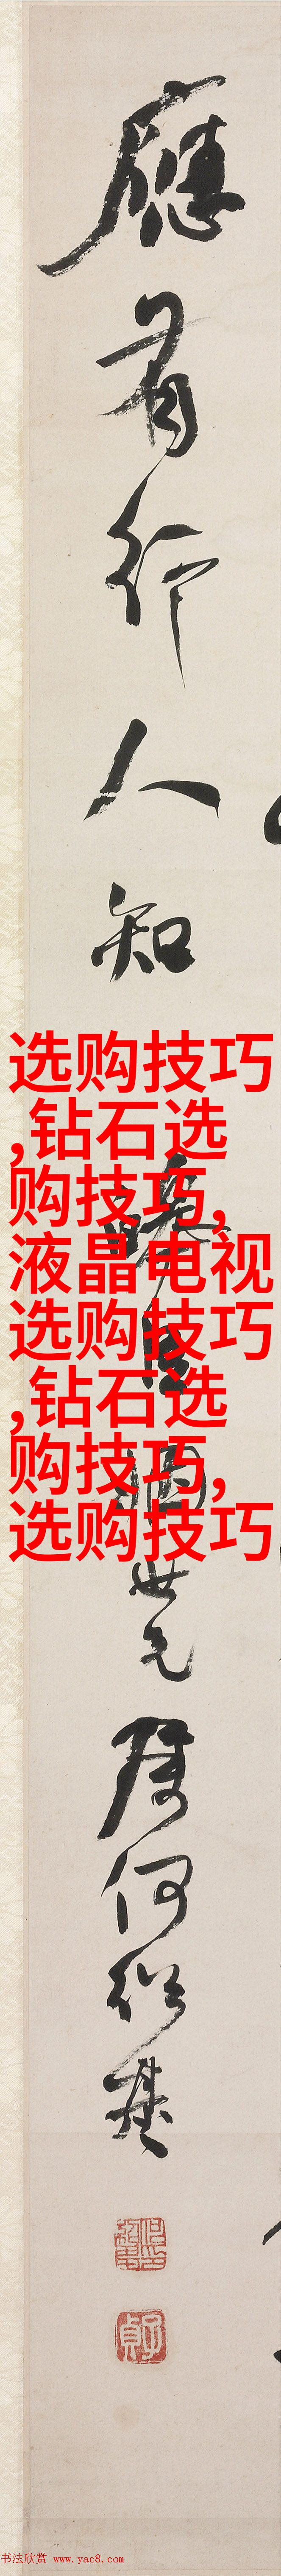 應有行人知
选购技巧
,钻石选
购技巧,
液晶电视
选购技巧
,钻石选
购技巧,
选购技巧
世兄
何紹基
子貞
书法欣赏 www.yac8.com